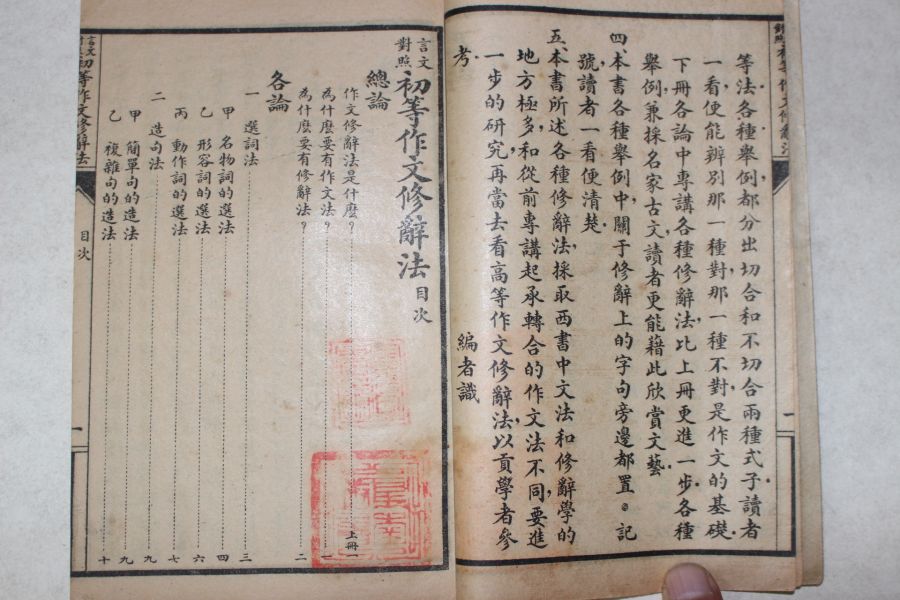 等法各種舉例都分出切合和不切合兩種式子讀者
一看便能辨別那一種對那一種不對是作文的基礎
下冊各論中專講各種修辭法比上冊更進一步各種
舉例兼採名家古文讀者更能藉此欣賞文藝
四、本書各種舉例中關于修辭上的字句旁邊都置。記
號讀者一看便清楚
五、本書所述各種修辭法採取西書中文法和修辭學的
地方極多和從前專講起承轉合的作文法不同要進
一步的研究再當去看高等作文修辭法以貢學者參
考
編者識
言文對照 初等作文修辭法 目次
總論
作文修辭法是什麽？ 上冊一
為什麽要有作文法？ 一
為什麽要有修辭法？ 二
各論
一 選詞法 三
甲 名物詞的選法 四
乙 形容詞的選法 六
丙 動作詞的選法 七
二 造句法 九
甲 簡單句的造法 九
乙 複雜句的造法 十
初等作文修辭法
目次
一